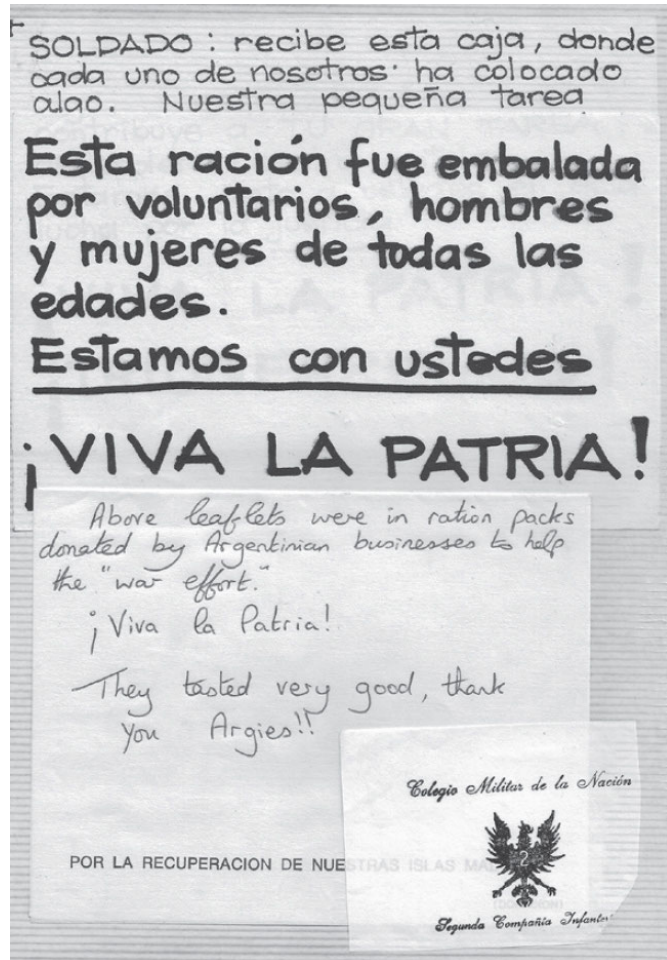 SOLDADO : recibe esta caja, donde
cada uno de nosotros ha colocado
algo. Nuestra pequeña tarea
Esta ración fue embalada
por voluntarios, hombres
y mujeres de todas las
edades.
Estamos con ustedes
¡VIVA LA PATRIA!
Above leaflets were in ration packs
donated by Argentinian businesses to help
the "war effort."
¡Viva la Patria!
They tasted very good, thank
you Argies!!
Colegio Militar de la Nación
2
POR LA RECUPERACION DE NUESTRAS ISLAS
Segunda Compañía